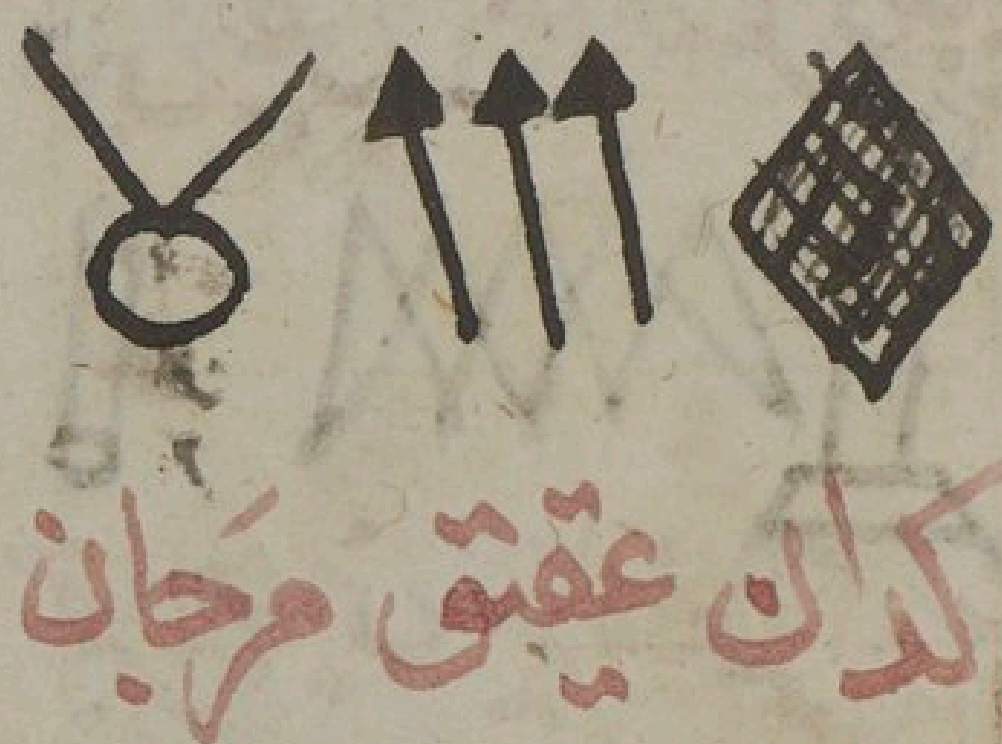 كدان عقيق مَرجان